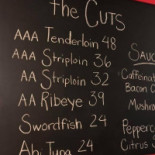 the CUTS
AAA Tenderloin 48
AAA Striploin 36
AA Striploin 32
AA Ribeye 39
Swordfish 24
Ahi Tuna 24
SAUC
Caffeinat
Bacon C
Mushro
Pepperc
Citrus